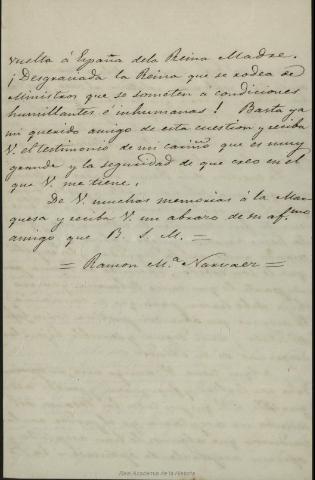 vuelta á España dela Reina Madre.
¡Desgraciada la Reina que se rodea de
Ministros que se someten á condiciones
humillantes é inhumanas! Basta ya
mi querido amigo de esta cuestion y reciba
V. el testimonio de mi cariño que es muy
grande y la seguridad de que creo en el
que V. me tiene.
De V. muchas memorias á la Mar-
quesa y reciba V. un abrazo de su af.mo
amigo que B. S. M. =
= Ramon M.a Narvaez =
Real Academia de la Historia